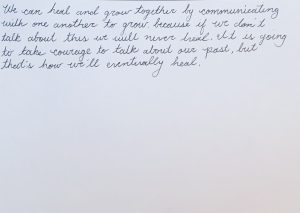 We can heal and grow together by communicating
with one another to grow because if we don't
talk about this we will never heal. It is going
to take courage to talk about our past, but
that's how we'll eventually heal.